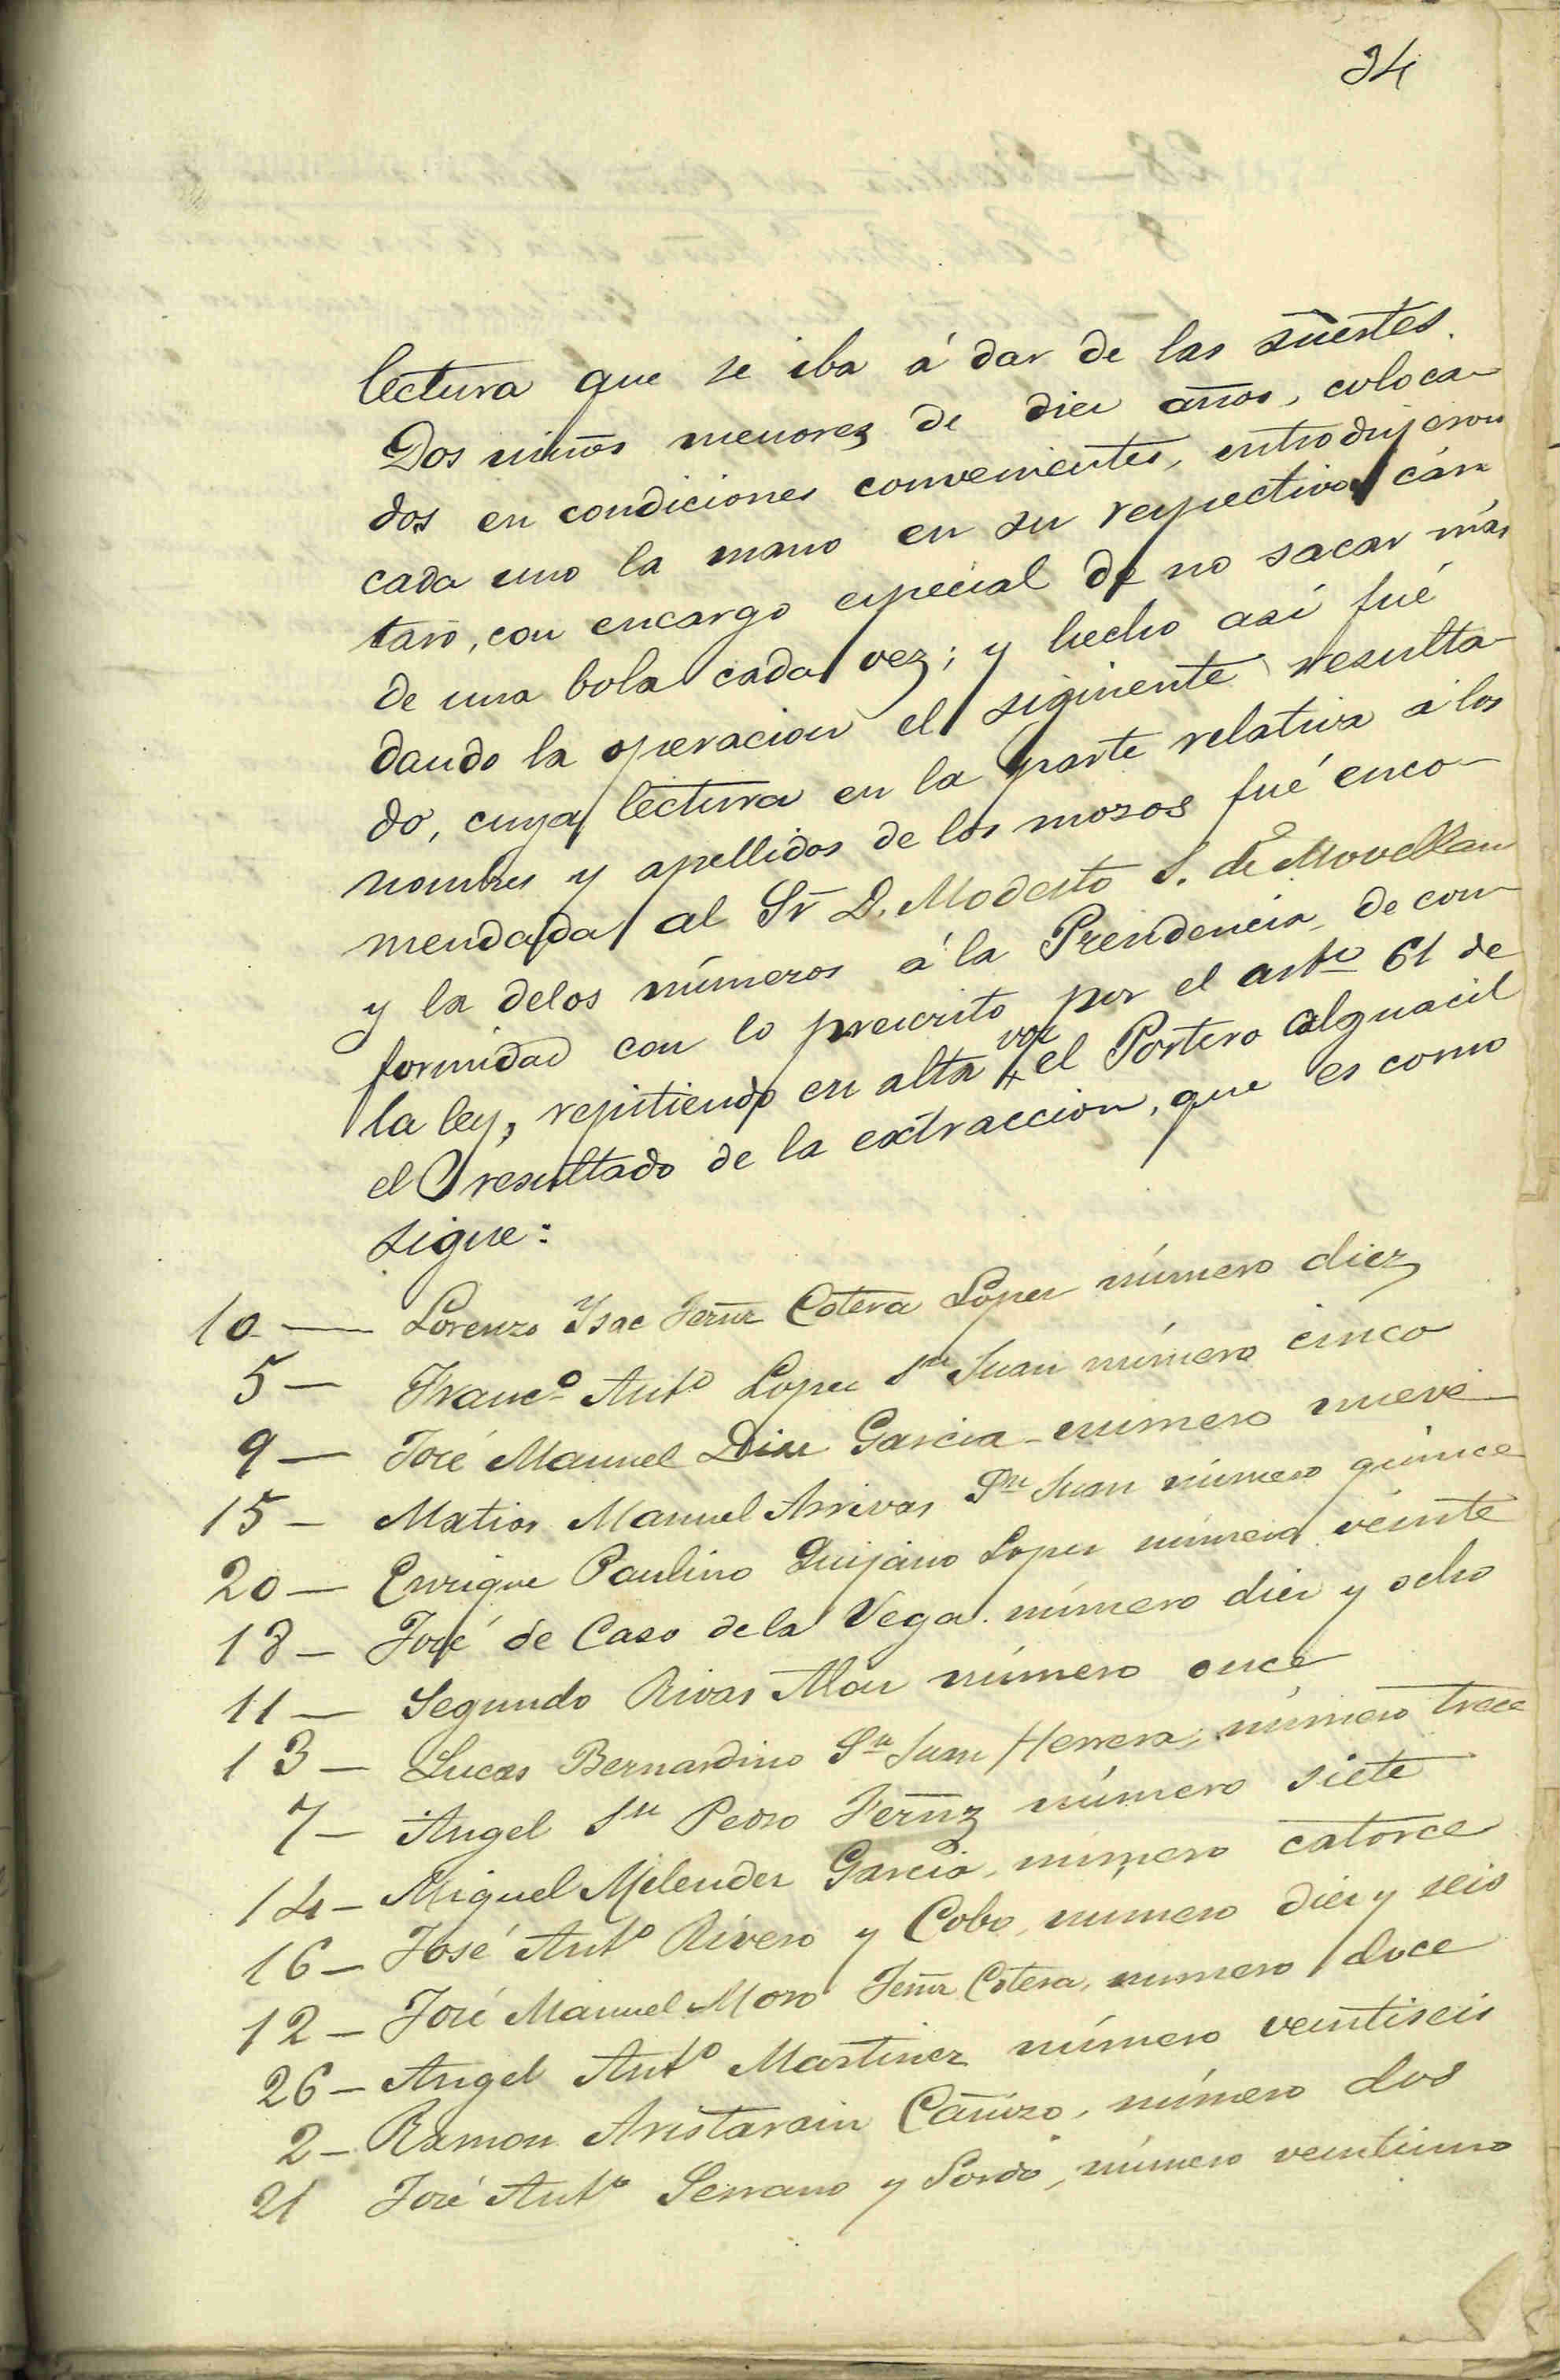 34
lectura que se iba á dar de las suertes.
Dos niños menores de diez años, coloca-
dos en condiciones convenientes, introdujeron
cada uno la mano en su respectivo cán-
taro, con encargo especial de no sacar más
de una bola cada vez; y hecho así fué
dando la operacion el siguiente resulta-
do, cuya lectura en la parte relativa á los
nombres y apellidos de los mozos fué enco-
mendada al Sr D. Modesto S. de Movellan
y la delos números á la Presidencia, de con-
formidad con lo prescrito por el artº 61 de
la ley, repitiendo en alta voz el Portero alguacil
el resultado de la extraccion, que es como
sigue:
10 — Lorenzo Ysac Fernz Cotera Lopez número diez
5 — Francº Antº Lopez Sn Juan número cinco
9 — José Manuel Diez Garcia número nueve
15 — Matias Manuel Arrivas Sn Juan número quince
20 — Enrique Paulino Quijano Lopez número veinte
18 — José de Caso de la Vega. número diez y ocho
11 — Segundo Rivas número once
13 — Lucas Bernardino Sn Juan Herrera, número trece
7 — Angel Sn Pedro Fernz número siete
14 — Miguel Melendez Garcia, número catorce
16 — José Antº Rivero y Cobo, numero diez y seis
12 — José Manuel Moro Fernz Cotera, numero doce
26 — Angel Antº Martinez número veintiseis
2 — Ramon Aristarain Cañizo, número dos
21 José Antº Serrano y Sordo, número veintiuno